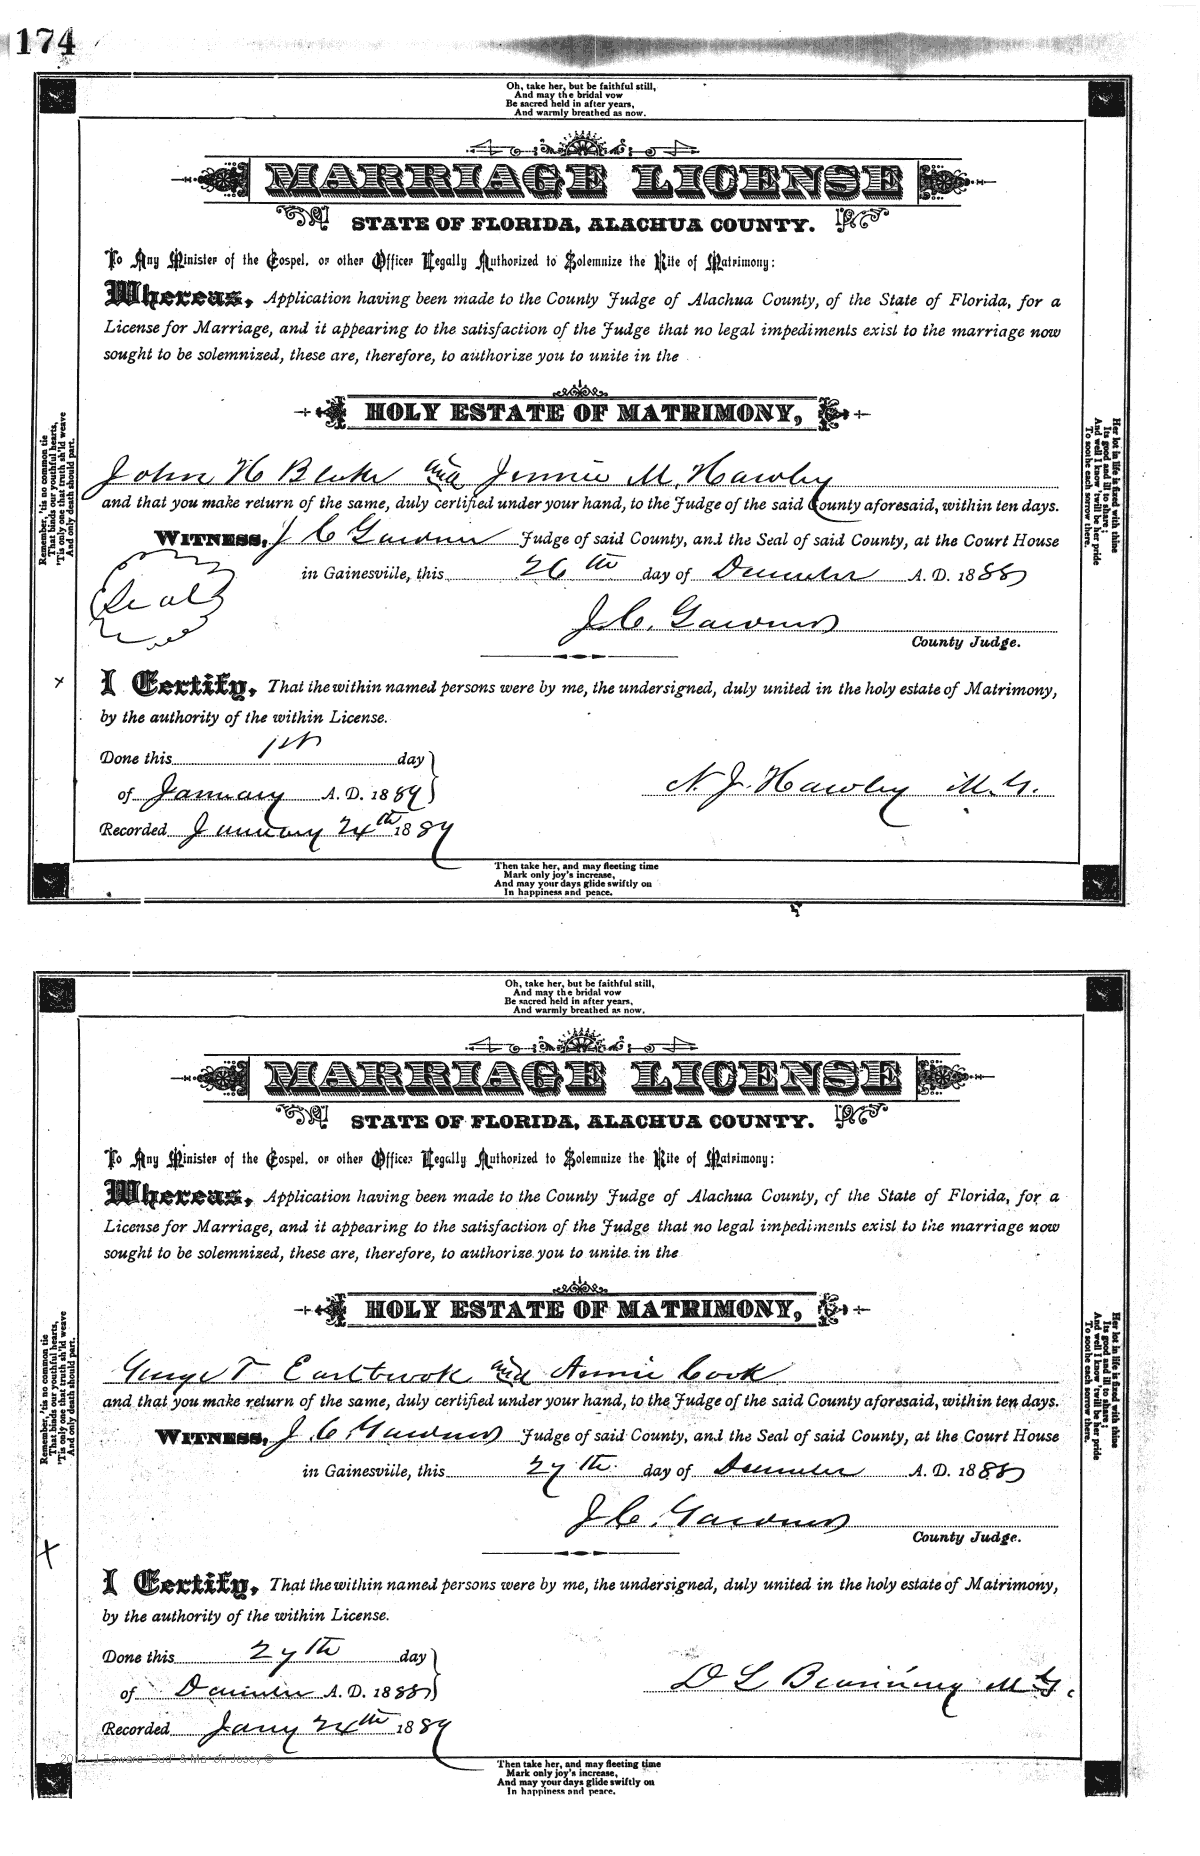 174
Oh, take her, but be faithful still,
And may the bridal vow
Be sacred held in after years,
And warmly breathed as now.
MARRIAGE LICENSE
STATE OF FLORIDA, ALACHUA COUNTY.
To Any Minister of the Gospel, or other Officer Legally Authorized to Solemnize the Rite of Matrimony:
Whereas, Application having been made to the County Judge of Alachua County, of the State of Florida, for a
License for Marriage, and it appearing to the satisfaction of the Judge that no legal impediments exist to the marriage now
sought to be solemnized, these are, therefore, to authorize you to unite in the
HOLY ESTATE OF MATRIMONY,
John H Blake and Jennie M. Hawley
and that you make return of the same, duly certified under your hand, to the Judge of the said County aforesaid, within ten days.
WITNESS, J C Gardner Judge of said County, and the Seal of said County, at the Court House
Seal
in Gainesville, this 26th day of December A. D. 1888
J. C. Gardner
County Judge.
I Certify, That the within named persons were by me, the undersigned, duly united in the holy estate of Matrimony,
by the authority of the within License.
Done this 1st day
of January A. D. 1889
N. J. Hawley M. G.
Recorded January 24th 1889
Then take her, and may fleeting time
Mark only joy's increase,
And may your days glide swiftly on
In happiness and peace.
Remember, 'tis no common tie
That binds our youthful hearts,
'Tis only one that truth sh'ld weave
And only death should part.
Her lot in life is fixed with thine
Its good and ill to share;
And well I know 'twill be her pride
To soothe each sorrow there.
Oh, take her, but be faithful still,
And may the bridal vow
Be sacred held in after years,
And warmly breathed as now.
MARRIAGE LICENSE
STATE OF FLORIDA, ALACHUA COUNTY.
To Any Minister of the Gospel, or other Officer Legally Authorized to Solemnize the Rite of Matrimony:
Whereas, Application having been made to the County Judge of Alachua County, of the State of Florida, for a
License for Marriage, and it appearing to the satisfaction of the Judge that no legal impediments exist to the marriage now
sought to be solemnized, these are, therefore, to authorize you to unite in the
HOLY ESTATE OF MATRIMONY,
George T and Annie Cook
and that you make return of the same, duly certified under your hand, to the Judge of the said County aforesaid, within ten days.
WITNESS, J. C. Gardner Judge of said County, and the Seal of said County, at the Court House
in Gainesville, this 27th day of December A. D. 1888
J. C. Gardner
County Judge.
I Certify, That the within named persons were by me, the undersigned, duly united in the holy estate of Matrimony,
by the authority of the within License.
Done this 27th day
of December A. D. 1888
D L M. G.
Recorded Jany 24th 1889
Then take her, and may fleeting time
Mark only joy's increase,
And may your days glide swiftly on
In happiness and peace.
Remember, 'tis no common tie
That binds our youthful hearts,
'Tis only one that truth sh'ld weave
And only death should part.
Her lot in life is fixed with thine
Its good and ill to share;
And well I know 'twill be her pride
To soothe each sorrow there.